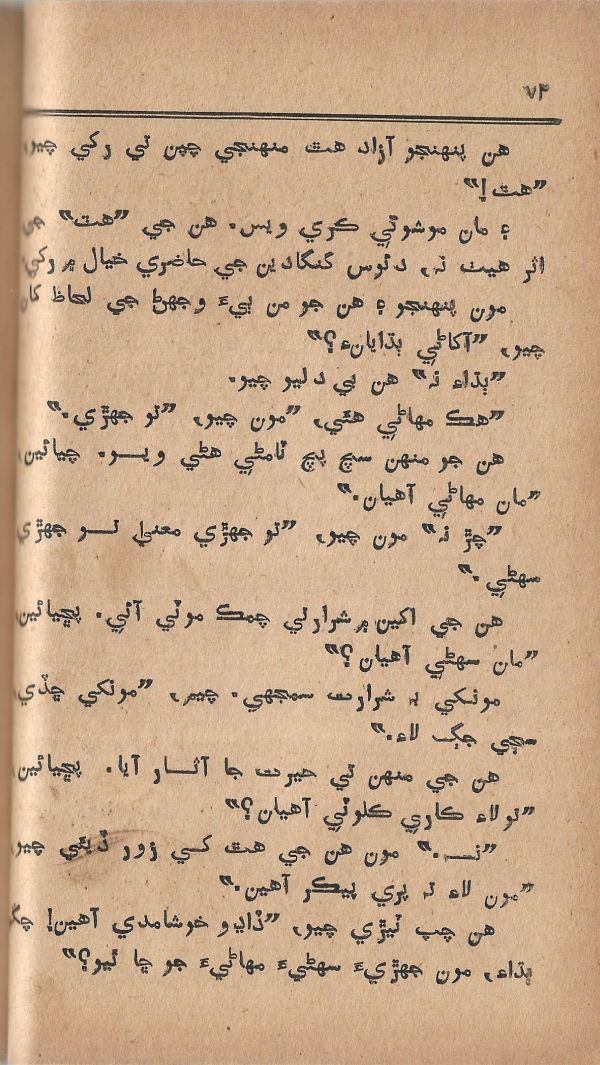 ۷۴
هن پنهنجو آزاد هٿ منهنجي چپن تي رکي چيو،
”هٿ!“
۽ مان موشوئي ڪري ويس. هن جي ”هٿ“ جي
اثر هيٺ نہ، دئوس گنگادين جي حاضري خيال ۾ رکي.
مون پنهنجو ۽ هن جو من ٻيءَ وجهڻ جي لحاظ کان
چيو، ”آکاڻي ٻڌايانءِ؟“
”ٻڌاءِ نہ“ هن بي دليو چيو.
”هڪ مهاڻي هئي، ”مون چيو، ”تو جهڙي.“
هن جو منهن سچ پچ ٽامڻي هڻي ويو. چيائين،
”مان مهاڻي آهيان.“
”چڙ نہ“ مون چيو، ”تو جهڙي معنيٰ تو جهڙي
سهڻي.“
هن جي اکين ۾ شرارتي چمڪ موٽي آئي. پڇيائين،
”مان سهڻي آهيان؟“
مونکي بہ شرارت سمجهي. چيم، ”مونکي ڇڏي،
سڄي جڳ لاءِ.“
هن جي منهن تي حيرت جا آثار آيا. پڇيائين،
”تو لاءِ ڪاري ڪلوٽي آهيان؟“
”نہ.“ مون هن جي هٿ کي زور ڏيئي چيو،
”مون لاءِ تہ پري پيڪر آهين.“
هن چپ ٽيڙي چيو، ”ڏاڍو خوشامدي آهين! چڱو
ٻڌاءِ، مون جهڙيءَ سهڻيءَ مهاڻيءَ جو ڇا ٿيو؟“